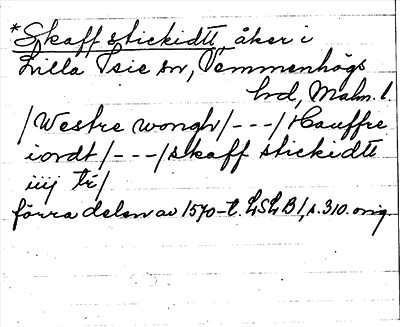 *Skaff stickidtt, åker i
Lilla Isie sn, Vemmenhögs
hd, Malm. l.
/Westre wongh/---/Hauffre
iordt/---/skaff stickidtt
iiij tr/
förra delen av 1570-t. LSLB 1, s. 310. orig.